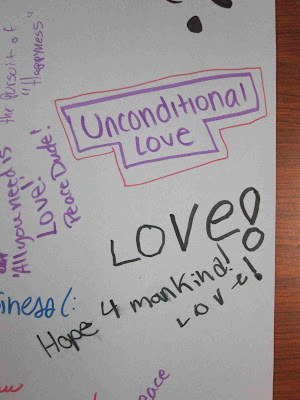 the pursuit of
"Happyness"
"All you need is
Love!
Peace Dude!
Unconditional
Love
LOVE!
iness(:
Hope 4 mankind!
LOVE!
peace